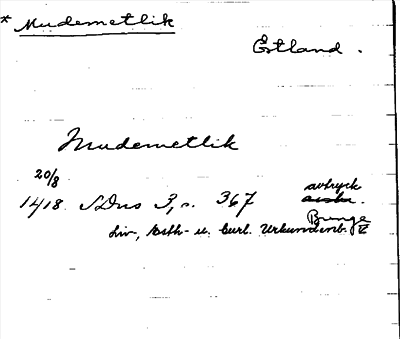 * Mudemetlik
Estland.
Mudemetlik
20/8
1418. SDns 3, s. 367 avtryck
Bunge
Liv-, Esth- u. Curl. Urkundenb. V